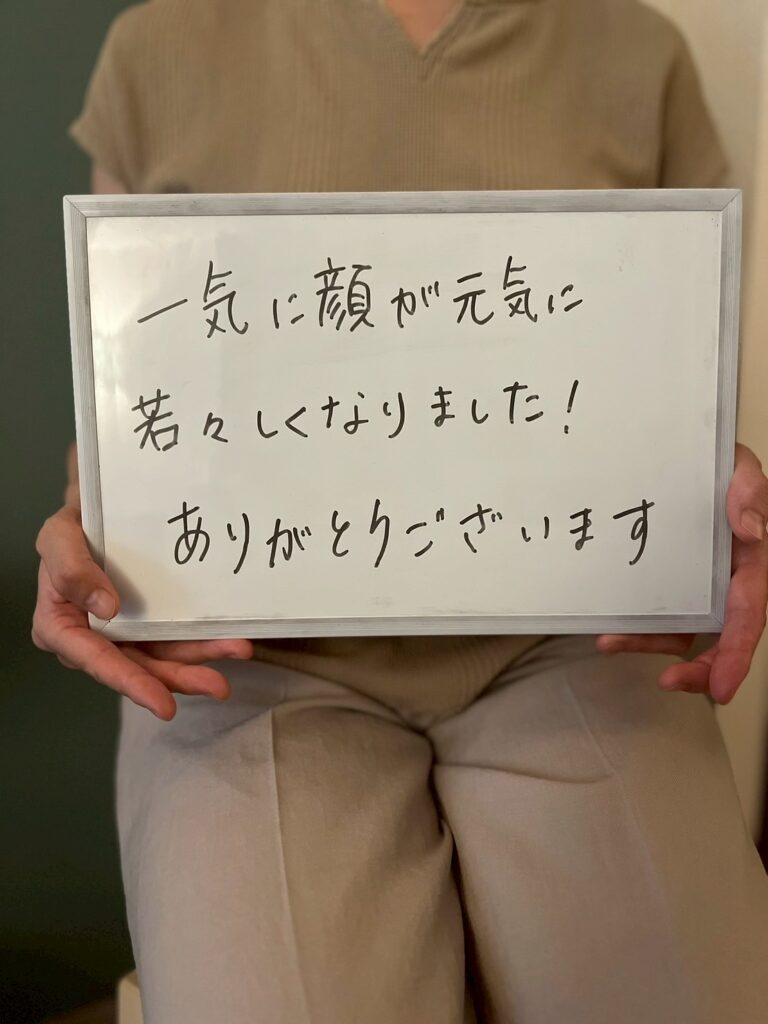 一気に顔が元気に
若々しくなりました!
ありがとうございます